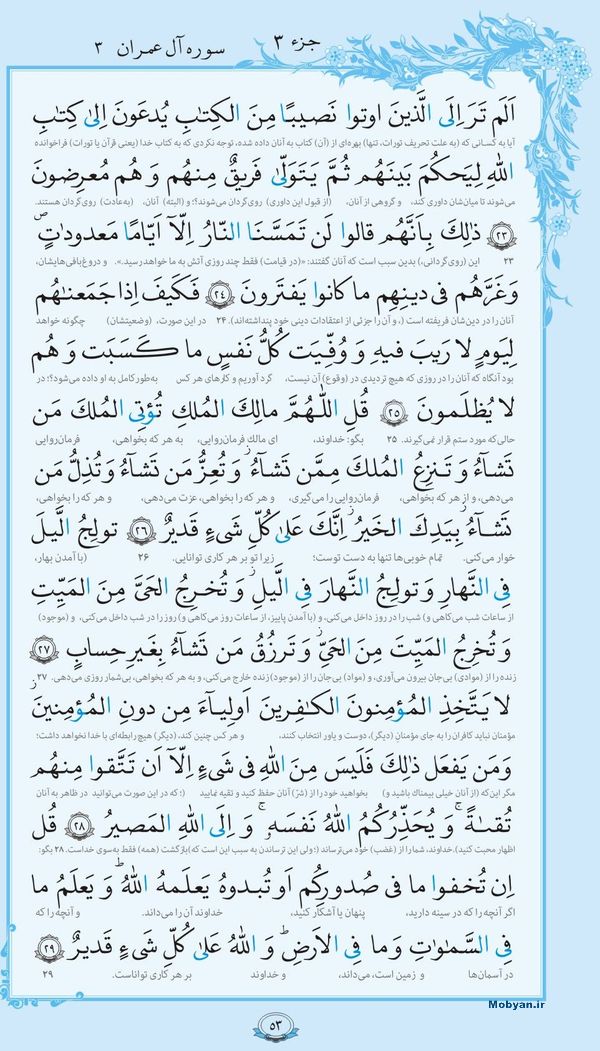 جزء ۳
سوره آل عمران ۳
اَلَم تَرَ اِلَی الَّذینَ اوتوا نَصیبًا مِنَ الکِتٰبِ یُدعَونَ اِلیٰ کِتٰبِ
آیا به کسانی که (به علت تحریف تورات، تنها) بهره‌ای از (آن) کتاب به آنان داده شده، توجه نکردی که به کتاب خدا (یعنی قرآن یا تورات) فراخوانده
اللهِ لِیَحکُمَ بَینَهُم ثُمَّ یَتَوَلّیٰ فَریقٌ مِنهُم وَ هُم مُعرِضونَ
می‌شوند تا میان‌شان داوری کند، و گروهی از آنان، (از قبول این داوری) روی‌گردان می‌شوند؟؛ و (البته) آنان، (به‌عادت) روی‌گردان هستند.
﴿۲۳﴾ ذٰلِكَ بِاَنَّهُم قالوا لَن تَمَسَّنَا النّارُ اِلّا اَیّامًا مَعدودٰتٍ ۖ
۲۳ این (روی‌گردانی،) بدین سبب است که آنان گفتند: «(در قیامت) فقط چند روزی آتش به ما خواهد رسید.». و دروغ‌بافی‌هایشان،
وَ غَرَّهُم فی دینِهِم ما کانوا یَفتَرونَ ﴿۲۴﴾ فَکَیفَ اِذا جَمَعنٰهُم
آنان را در دین‌شان فریفته است (، و آن را جزئی از اعتقادات دینی خود پنداشته‌اند). ۲۴ در این صورت، (وضعیتشان) چگونه خواهد
لِیَومٍ لا رَیبَ فیهِ وَ وُفِّیَت کُلُّ نَفسٍ ما کَسَبَت وَ هُم
بود آنگاه که آنان را در روزی که هیچ تردیدی در (وقوع) آن نیست، گرد آوریم و کارهای هر کس به‌طور کامل به او داده می‌شود؟؛ در
لا یُظلَمونَ ﴿۲۵﴾ قُلِ اللّٰهُمَّ مالِكَ المُلكِ تُؤتِی المُلكَ مَن
حالی که مورد ستم قرار نمی‌گیرند. ۲۵ بگو: خداوند، ای مالك فرمان‌روایی، به هر که بخواهی، فرمان‌روایی
تَشآءُ وَ تَنزِعُ المُلكَ مِمَّن تَشآءُ وَ تُعِزُّ مَن تَشآءُ وَ تُذِلُّ مَن
می‌دهی، و از هر که بخواهی، فرمان‌روایی را می‌گیری، و هر که را بخواهی، عزت می‌دهی، و هر که را بخواهی،
تَشآءُ ۖ بِیَدِكَ الخَیرُ ۖ اِنَّكَ عَلیٰ کُلِّ شَیءٍ قَدیرٌ ﴿۲۶﴾ تولِجُ الَّیلَ
خوار می‌کنی. تمام خوبی‌ها تنها به دست توست؛ زیرا تو بر هر کاری توانایی. ۲۶ (با آمدن بهار،
فِی النَّهارِ وَ تولِجُ النَّهارَ فِی الَّیلِ ۖ وَ تُخرِجُ الحَیَّ مِنَ المَیِّتِ
از ساعات شب می‌کاهی و) شب را در روز داخل می‌کنی، و (با آمدن پاییز، از ساعات روز می‌کاهی و) روز را در شب داخل می‌کنی، و (موجود)
وَ تُخرِجُ المَیِّتَ مِنَ الحَیِّ ۖ وَ تَرزُقُ مَن تَشآءُ بِغَیرِ حِسابٍ ﴿۲۷﴾
زنده را از (موادی) بی‌جان بیرون می‌آوری، و (مواد) بی‌جان را از (موجود) زنده خارج می‌کنی، و به هر که بخواهی، بی‌شمار روزی می‌دهی. ۲۷
لا یَتَّخِذِ المُؤمِنونَ الکٰفِرینَ اَولِیآءَ مِن دونِ المُؤمِنینَ ۖ
مؤمنان نباید کافران را به جای مؤمنان (دیگر)، دوست و یاور انتخاب کنند، و هر کس چنین کند، (دیگر) هیچ رابطه‌ای با خدا نخواهد داشت؛
وَمَن یَفعَل ذٰلِكَ فَلَیسَ مِنَ اللهِ فی شَیءٍ اِلّا اَن تَتَّقوا مِنهُم
مگر این‌که (از آنان خیلی بیمناك باشید و) بخواهید خود را از (شرّ) آنان حفظ کنید و تقیه نمایید (؛ که در این صورت می‌توانید در ظاهر به آنان
تُقیٰةً ۚ وَ یُحَذِّرُکُمُ اللهُ نَفسَهُ ۚ وَ اِلَی اللهِ المَصیرُ ﴿۲۸﴾ قُل
اظهار محبت کنید). خداوند، شما را از (غضب) خود می‌ترساند (؛ ولی این ترساندن به سبب این است که) بازگشت (همه) فقط به‌سوی خداست. ۲۸ بگو:
اِن تُخفوا ما فی صُدورِکُم اَو تُبدوهُ یَعلَمهُ اللهُ ۗ وَ یَعلَمُ ما
اگر آنچه را که در سینه دارید، پنهان یا آشکار کنید، خداوند آن را می‌داند. و آنچه را که
فِی السَّمٰوٰتِ وَ ما فِی الاَرضِ ۗ وَ اللهُ عَلیٰ کُلِّ شَیءٍ قَدیرٌ ﴿۲۹﴾
در آسمان‌ها و زمین است، می‌داند، و خداوند بر هر کاری تواناست. ۲۹
Mobyan.ir
۵۳